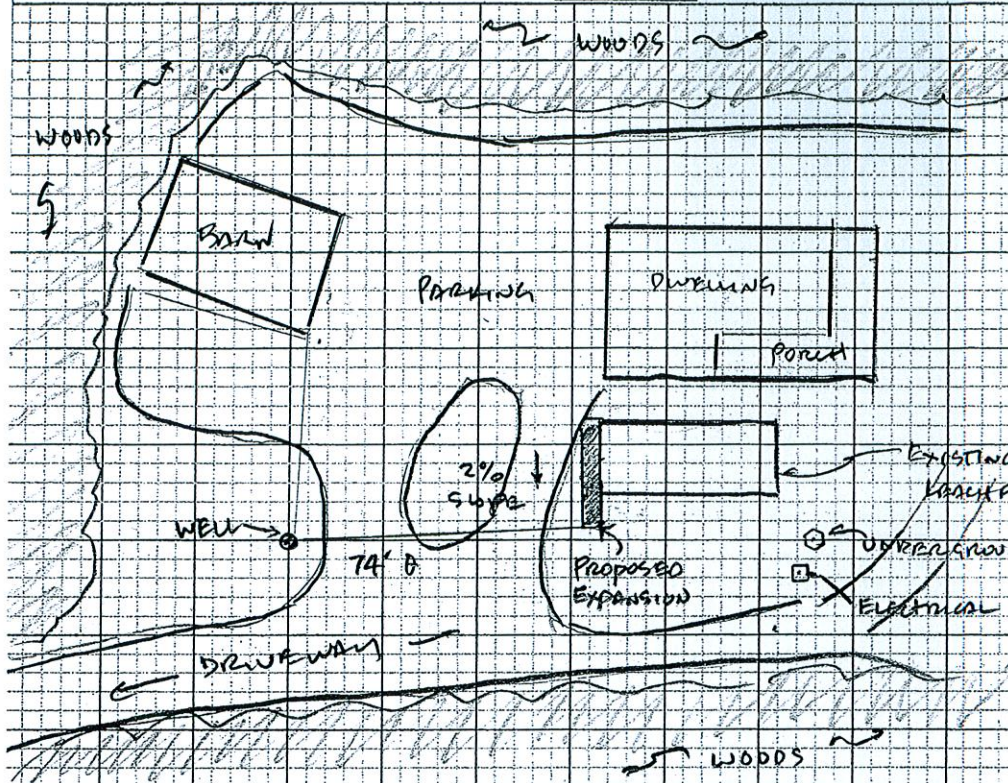 WOODS
WOODS
BARN
PARKING
DWELLING
PORCH
2%
SLOPE
EXISTING
WELL
74'
PROPOSED
EXPANSION
ELECTRICAL
DRIVEWAY
WOODS